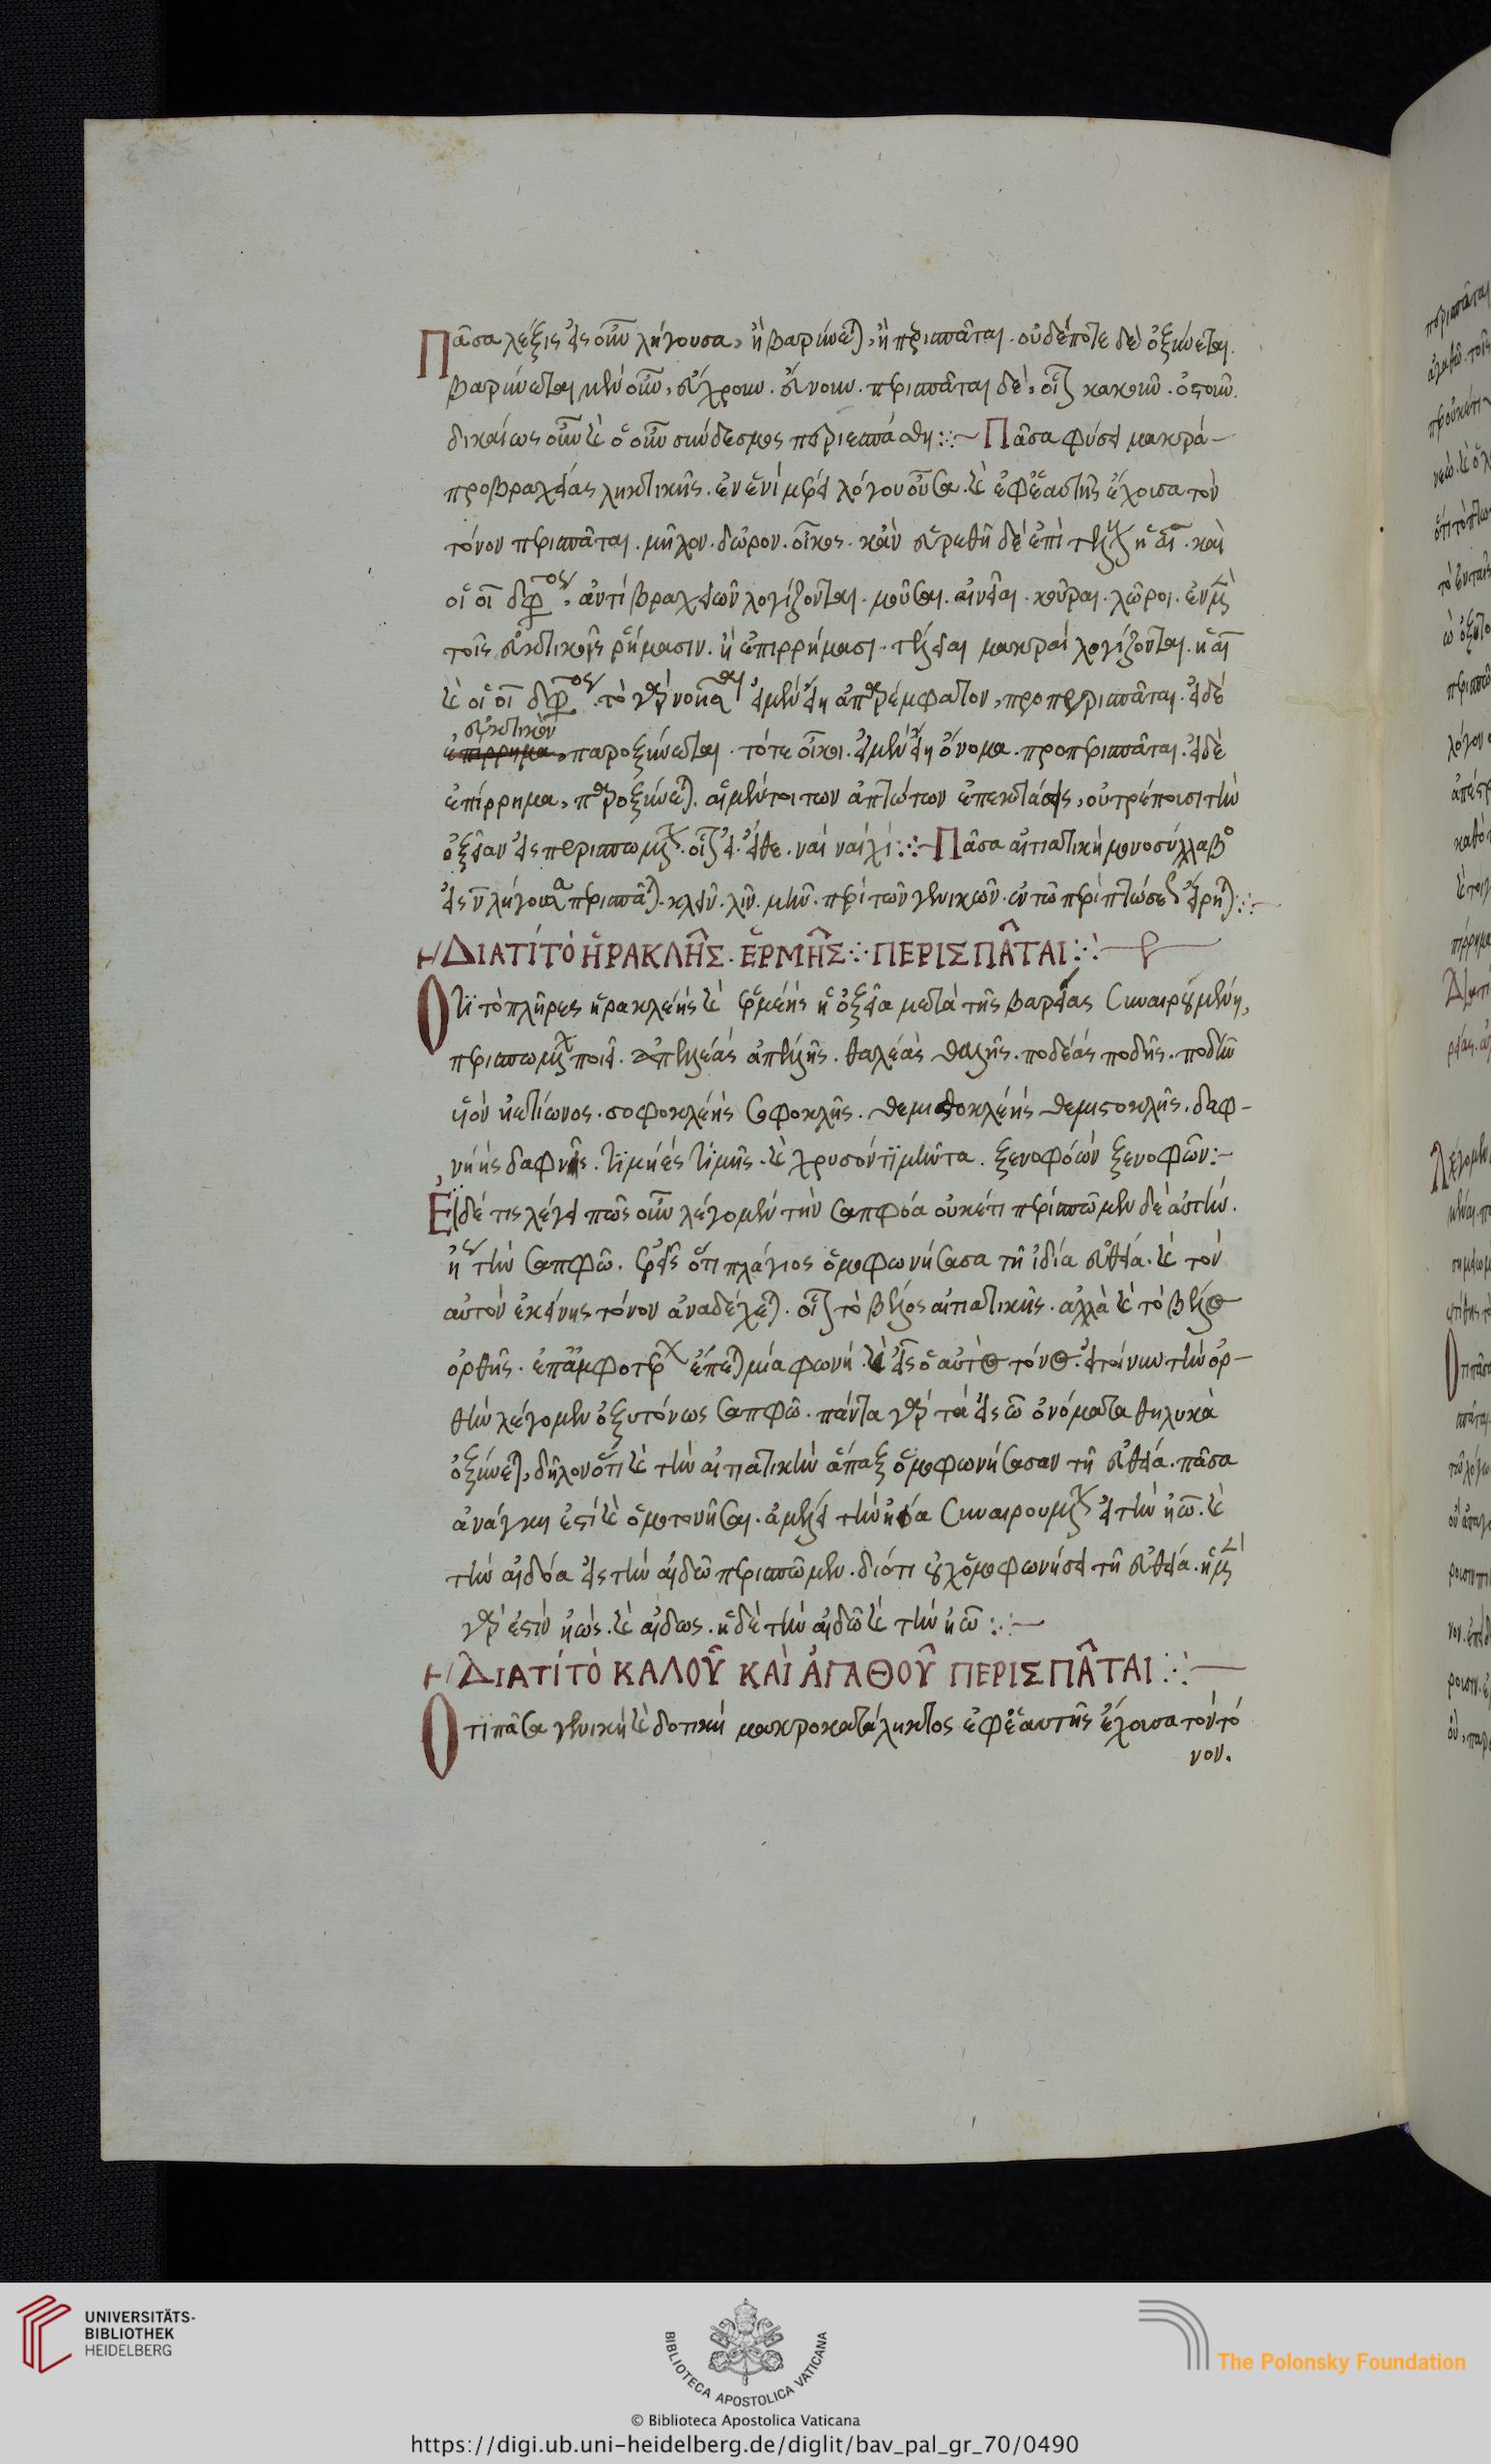 Πᾶσα λέξις εἰς οῦν λήγουσα, ἢ βαρύνεται, ἢ περισπᾶται. οὐδέποτε δὲ ὀξύνεται.
βαρύνεται μὲν οὖν, εὔχρουν. εὔνουν. περισπᾶται δὲ, οἷον κακοῦν. ὀστοῦν.
δικαίως οὖν καὶ ὁ οὖν σύνδεσμος περιεσπάσθη :·~ Πᾶσα φύσει μακρά –
προβραχείας ληκτικῆς. ἐν ἑνὶ μέρει λόγου οὖσα. καὶ ἐφ' ἑαυτῆς ἔχουσα τὸν
τόνον περισπᾶται. μῆλον. δῶρον. οἶκος. κἂν εὑρεθῇ δὲ ἐπὶ τέλους ἡ αι. καὶ
ἡ οι δίφθογγος, ἀντὶ βραχειῶν λογίζονται. μοῦσαι. αἰνεῖαι. κοῦραι. χῶροι. ἐν μὲν
τοῖς εὐκτικοῖς ῥήμασιν. ἢ ἐπιρρήμασι. τέλειαι μακραὶ λογίζονται. ἡ αι
καὶ ἡ οι δίφθογγος. τὸ γὰρ νοῆσαι εἰ μὲν εἴη ἀπαρέμφατον, προπερισπᾶται. εἰ δὲ
εὐκτικὸν
ἐπίρρημα, παροξύνεται. τότε οἶκοι. εἰ μὲν εἴη ὄνομα. προπερισπᾶται. εἰ δὲ
ἐπίρρημα, παροξύνεται. αἱ μέντοι των ἀπτώτων ἐπεκτάσεις, οὐ τρέπουσι τὴν
ὀξεῖαν εἰς περισπωμένην. οἷον εἰ. εἴθε. ναί ναίχι :·~ Πᾶσα αἰτιατικὴ μονοσύλλαβος
εἰς ν λήγουσα περισπᾶται. κλεῖν. λῖν. μῆν. περὶ τῶν γενικῶν. ἐν τῷ περὶ πτώσεων εἴρηται :·–
ΔΙΑΤΊ ΤῸ ἩΡΑΚΛΗ͂Σ. ἙΡΜΗ͂Σ :· ΠΕΡΙΣΠΑ͂ΤΑΙ :·–
Ὅτι τὸ πλῆρες ἡρακλέης καὶ ἑρμέης ἡ ὀξεῖα μετὰ τῆς βαρείας συναιρουμένη,
περισπωμένην ποιεῖ. ἀπελλέας ἀπελλῆς. θαλέας θαλῆς. ποδέας ποδῆς. ποδῶν
ἠόν ἠετίωνος. σοφοκλέης σοφοκλῆς. θεμιστοκλέης θεμιστοκλῆς. δαφ-
νήης δαφνῆς. τιμήεις τιμῆς. καὶ χρυσὸν τιμῆντα. ξενοφόων ξενοφῶν :–
Εἰ δέ τις λέγει πῶς οὖν λέγομεν τὴν σαπφόα οὐκέτι περισπῶμεν δὲ αὐτήν.
τὴν σαπφῶ. ὅτι πλάγιος ὁμοφωνήσασα τῇ ἰδίᾳ εὐθείᾳ. καὶ τὸν
αὐτὸν ἐκείνης τόνον ἀναδέχεται. οἷον τὸ βέλος αἰτιατικῆς. ἀλλὰ καὶ τὸ βέλος
ὀρθῆς. ἐπ' ἀμφοτέρων ἕπεται μία φωνή. καὶ εἷς ὁ αὐτὸς τόνος. εἰ τοίνυν τὴν ὀρ-
θὴν λέγομεν ὀξυτόνως σαπφῶ. πάντα γὰρ τὰ εἰς ω ὀνόματα θηλυκὰ
ὀξύνεται, δῆλον ὅτι καὶ τὴν αἰτιατικὴν ἅπαξ ὁμοφωνήσασαν τῇ εὐθείᾳ. πᾶσα
ἀνάγκη ἐστὶ καὶ ὁμοτονῆσαι. ἀμέλει τὴν ἠόα συναιρουμένην εἰς τὴν ἠῶ. καὶ
τὴν αἰδόα εἰς τὴν αἰδῶ περισπῶμεν. διότι οὐχ ὁμοφωνήσει τῇ εὐθείᾳ. ἡ μὲν
γάρ ἐστιν ἠώς. καὶ αἰδως. ἡ δὲ τὴν αἰδῶ καὶ τὴν ἠῶ :·–
ΔΙΑΤΊ ΤῸ ΚΑΛΟΥ͂ ΚΑῚ ἈΓΑΘΟΥ͂ ΠΕΡΙΣΠΑ͂ΤΑΙ :·–
Ὅτι πᾶσα γενικὴ καὶ δοτικὴ μακροκατάληκτος ἐφ' ἑαυτῆς ἔχουσα τὸν τό
νον.
UNIVERSITÄTS-
BIBLIOTHEK
HEIDELBERG
BIBLIOTECA APOSTOLICA VATICANA
The Polonsky Foundation
© Biblioteca Apostolica Vaticana
https://digi.ub.uni-heidelberg.de/diglit/bav_pal_gr_70/0490